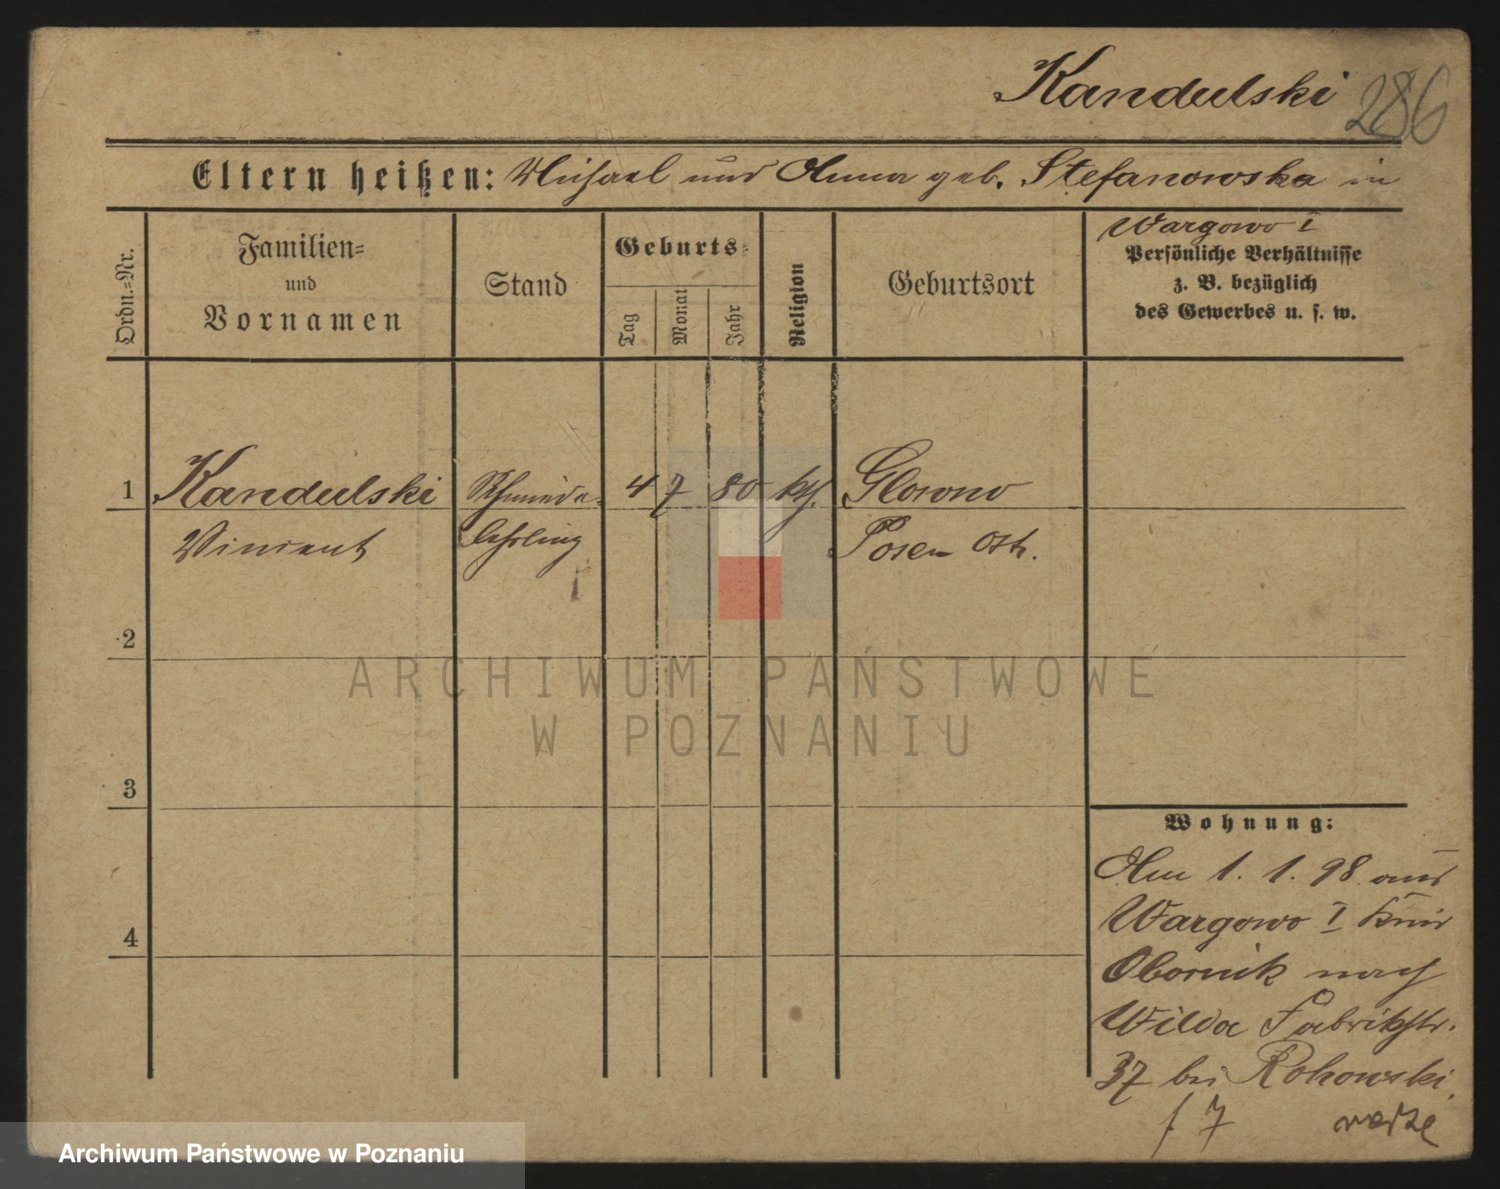 Kandulski
286
Eltern heißen: Michael und Anna geb. Stefanowska in
Wargowo I
Ordn.=Nr.
Familien=
und
Vornamen
Stand
Geburts=
Tag
Monat
Jahr
Religion
Geburtsort
Persönliche Verhältnisse
z. B. bezüglich
des Gewerbes u. s. w.
1 Kandulski Schmiede- 4 7 80 kth. Glowno
Vincent Lehrling Posen Ost.
2
ARCHIWUM PAŃSTWOWE
W POZNANIU
3
Wohnung:
Am 1. 1. 98 aus
Wargowo I Kreis
4
Obornik nach
Wilda Fabrikstr.
37 bei Rokowski
7
Archiwum Państwowe w Poznaniu